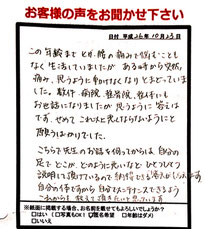 お客様の声をお聞かせ下さい
日付 平成26年10月25日
この年齢まで とか、膝の痛みで悩むことも
なく生活していましたが ある時から突然
痛み、思うように動けなくなりとまどっていま
した。数件、病院、整骨院、整体にも
お世話になりましたが 思うように 答えは
でず、せめて これ以上 悪くならないようにと
願うばかりでした。
こちらで先生のお話を伺ってからは 自分の
足で どこが、どのように 悪いなど ひとつひとつ
説明して頂いているので 納得
自分の体ですから 自分でメンテナンスできるよう
これからも 教えて頂きたいと思います。
※紙面に掲載する場合、お名前を載せてもよろしいでしょうか?
□はい(□写真もOK! □匿名希望 □年齢はダメ)
□いいえ